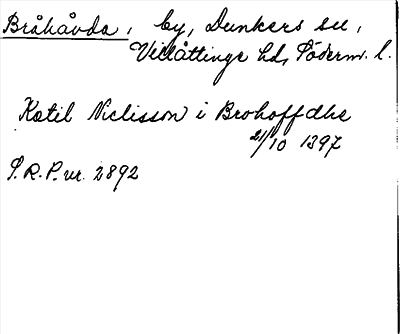 Bråhåvda, by, Dunkers sn,
Villåttinge hd, Söderm. l.
Ketil Niclisson i Brohoffdhe
21/10 1397
S.R.P. nr. 2892